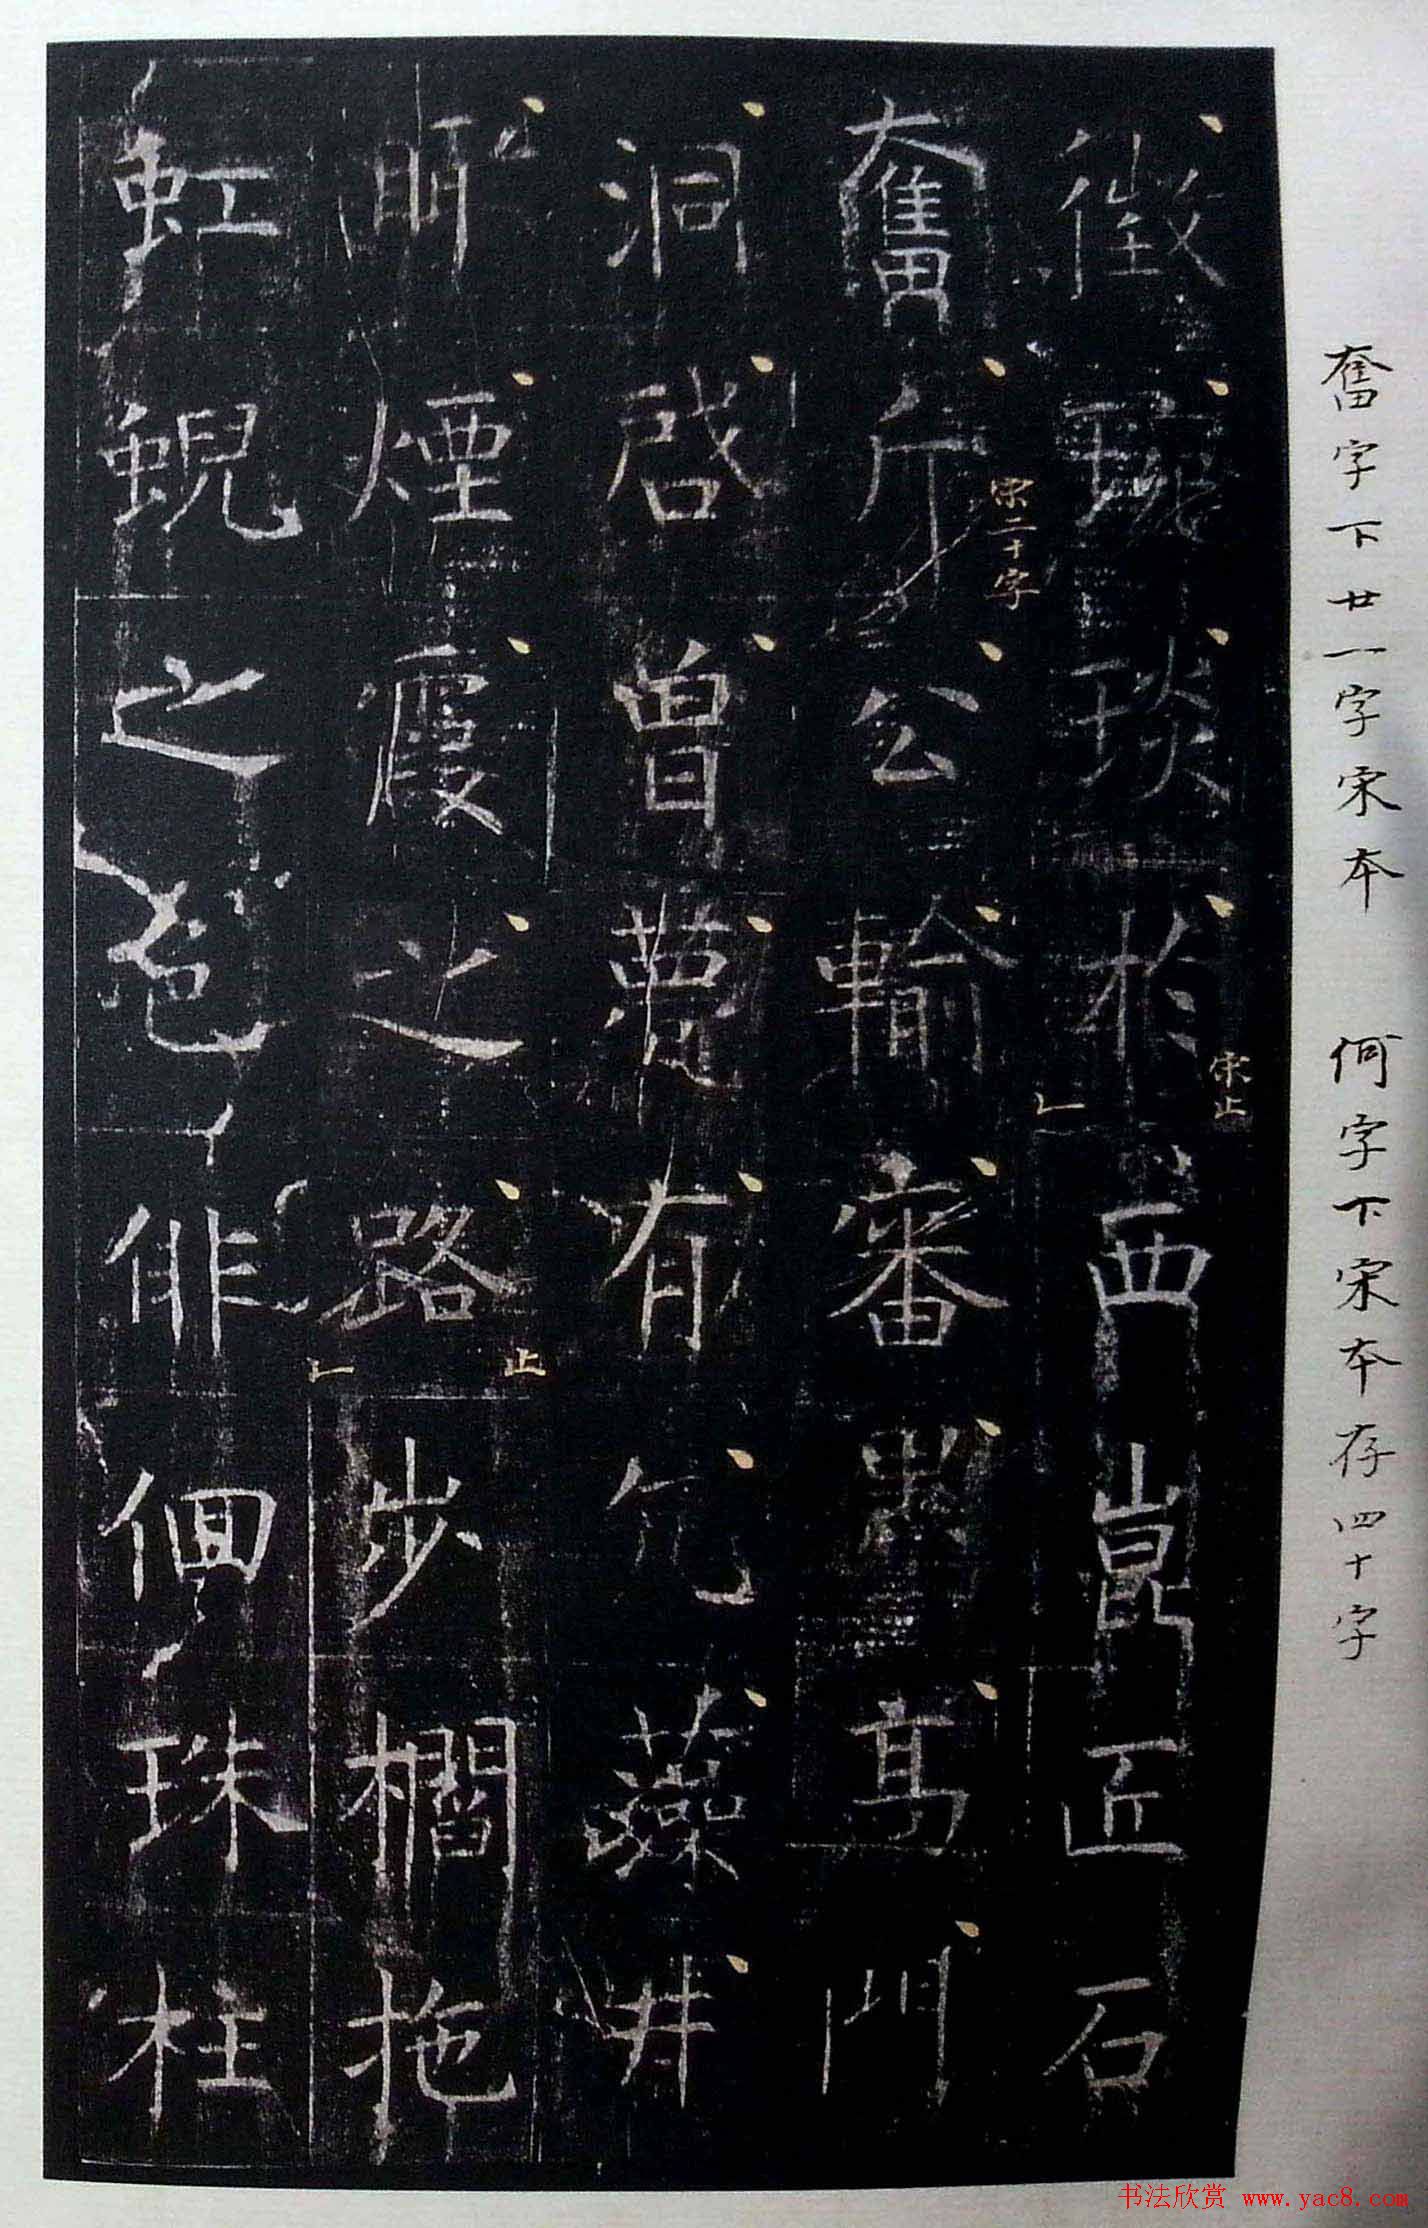 奮字下廿一字宋本　何字下宋本存四十字
徵琬琰於西崑匠石
宋止
奮斤公輸審墨高門
宋二十字
洞啓曾甍有伉藻井
煙霞之路步櫩拖
止
虹蜺之色俳佪珠柱
书法欣赏 www.yac8.com